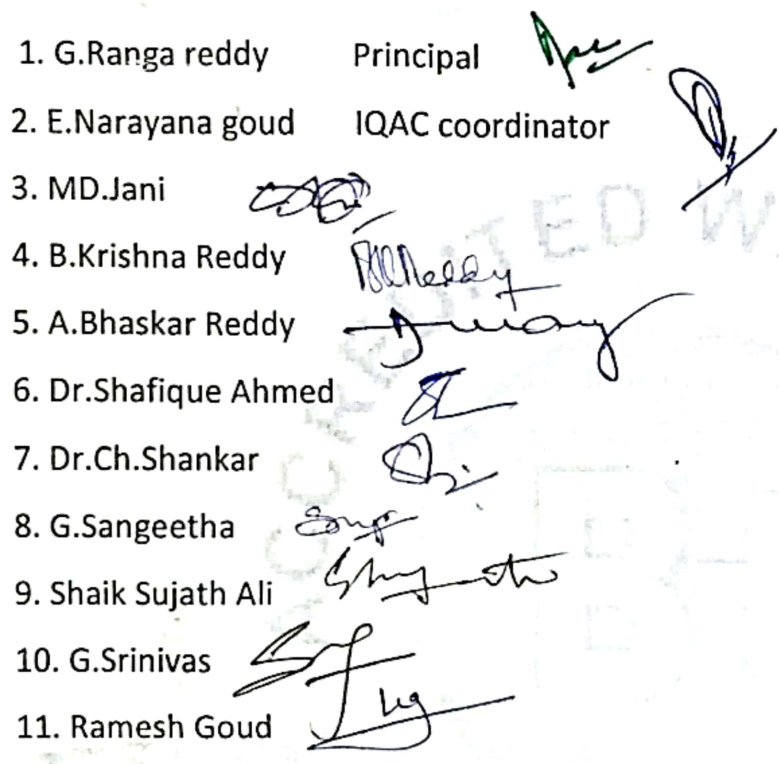 1. G.Ranga reddy Principal
2. E.Narayana goud IQAC coordinator
3. MD.Jani
4. B.Krishna Reddy
5. A.Bhaskar Reddy
6. Dr.Shafique Ahmed
7. Dr.Ch.Shankar
8. G.Sangeetha
9. Shaik Sujath Ali
10. G.Srinivas
11. Ramesh Goud